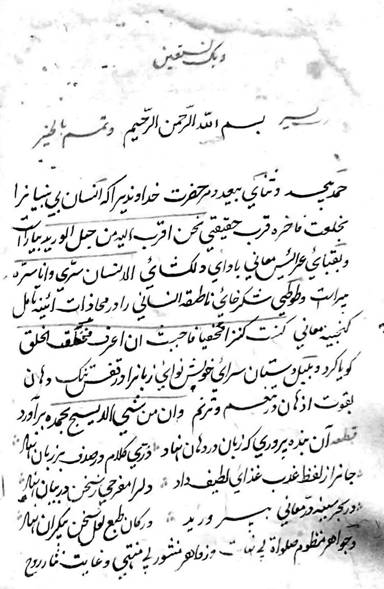 وبک نستعین
رب یسر بسم الله الرحمن الرحیم وتمم بالخیر
حمد بیحد و ثنای بیعد مر حضرت خداوندیرا که انسان بی بنیانرا
بخلعت فاخره قرب حقیقی نحن اقرب الیه من حبل الورید بیاراست
و معانی الانسان سری وانا سره
و طوطی شکرخای ناطقه انسانی را در محاذات آئینه تامل
گنجینه معانی کنت کنزا مخفیا فاحببت ان اعرف فخلقت الخلق
گویا کرد و بلبل دستان سرای خوش نوای زبانرا در قفس تنگ دهان
بقوت اذهان در تنعم و ترنم وان من شیء الا یسبح بحمده برآورد
قطعه آن بنده پروری که زبان در دهان نهاد در کلام در صدف بر زبان نهاد
جانرا ز لفظ عذب غذای لطیف داد دلرا مفرحی ز سخن در بیان نهاد
در بحر سینه در معانی بپرورید در کان طبع لعل سخن بیکران نهاد
و جواهر منظوم صلوات بی نهایت و زواهر منثور بی منتهی و غایت روح